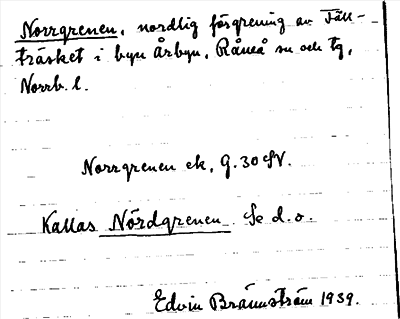 Norrgrenen, nordlig förgrening av Täll-
träsket i byn Årbyn, Råneå sn och tg,
Norrb. l.
Norrgrenen ek. G. 30 SV.
Kallas Nördgrenen Se d. o.
Edvin Brännström 1939.